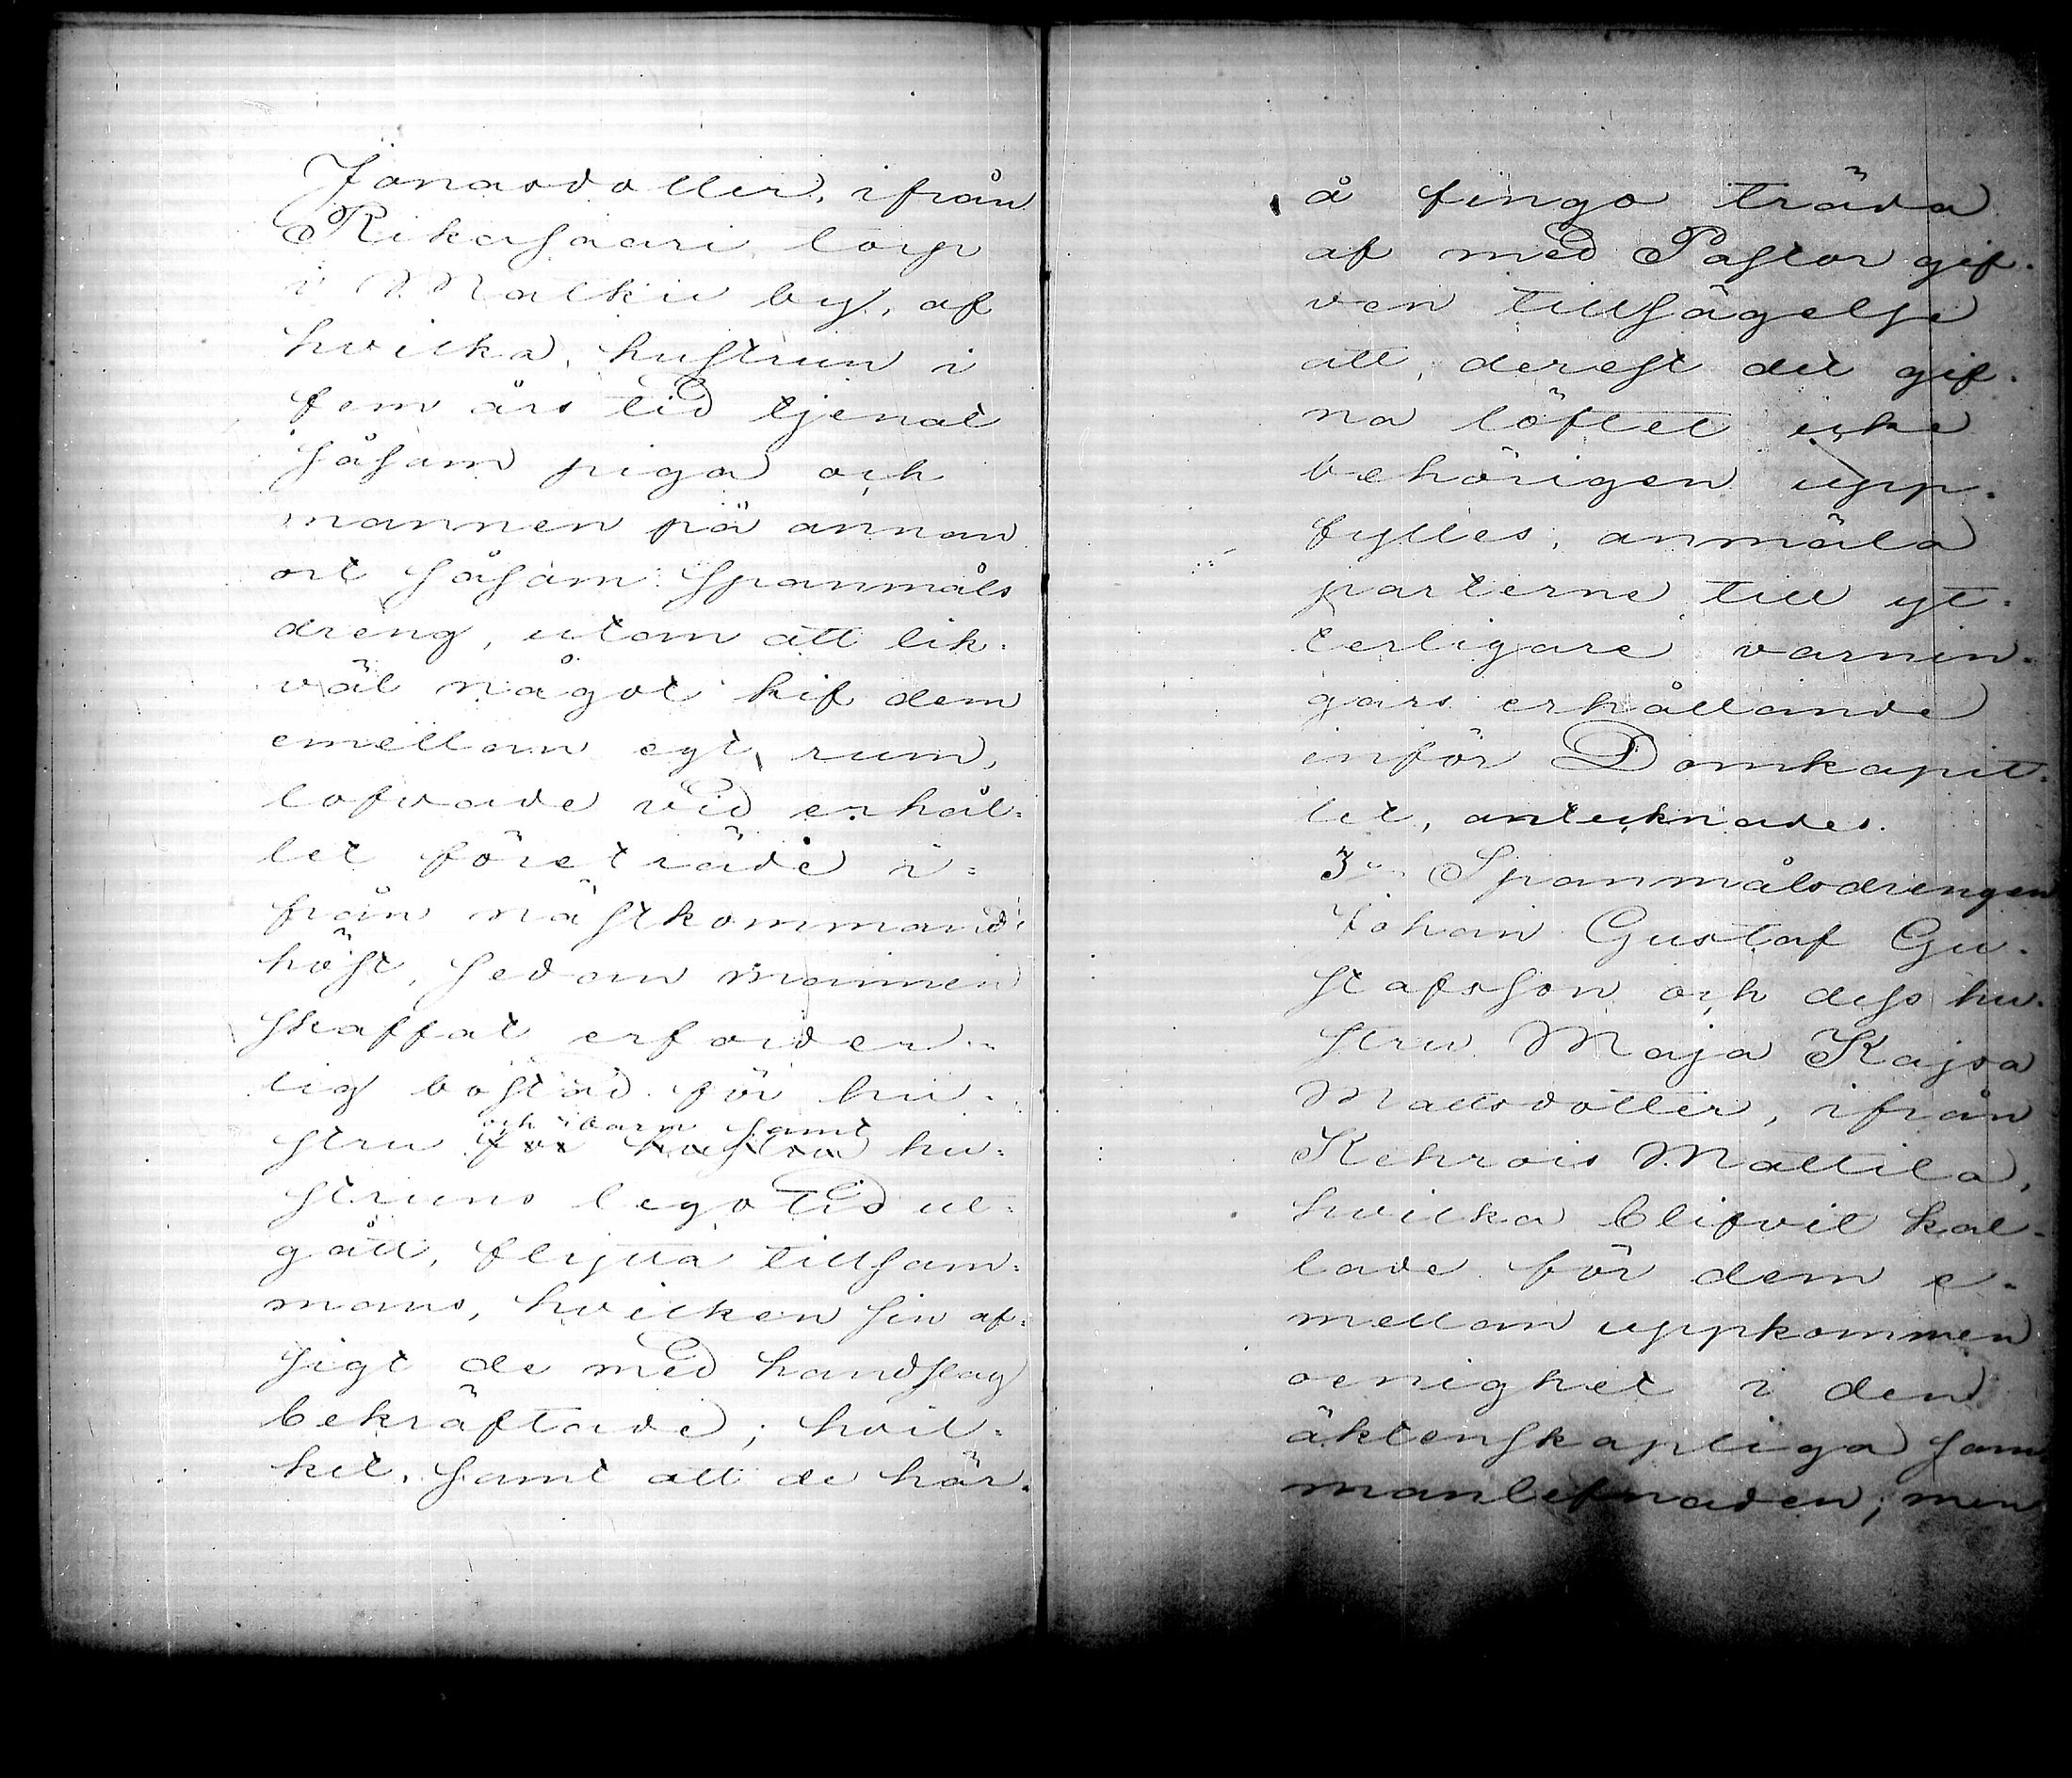 Jonasdotter, ifrån
Rikasaari torp
i Matku by, af
hvilka, hustrun i
fem års tid tjenat
såsom piga och
mannen på annan
ort såsom spanmåls
dreng, utom att lik-
väl något kif dem
emellan egt rum,
lofvade vid erhål-
let företräde i-
från nästkommande
höst, sedan mannen
skaffat erforder-
lig bostad för hu-
och barn samt
stru för hustru hu-
struns legotid ut-
gått, flytta tillsam-
mans, hvilken sin af-
sigt de med handslag
bekräftade; hvil-
ket, samt att de här-
å fingo träda
af med Pastor gif-
ven tillsägelse
att, derest det gif-
na löftet icke
behörigen upp-
fylles, anmäla
parterne till yt-
terligare varnin-
gars erhållande
inför Domkapit-
let, antecknades.
3o Spanmålsdrengen
Johan Gustaf Gu-
stafsson och dess hu-
stru Maja Kajsa
Mattsdotter, ifrån
Kehrois Mattila,
hvilka blifvit kal-
lade för dem e-
mellan uppkommen
oenighet i den
äktenskapliga sam-
manlefnaden; men